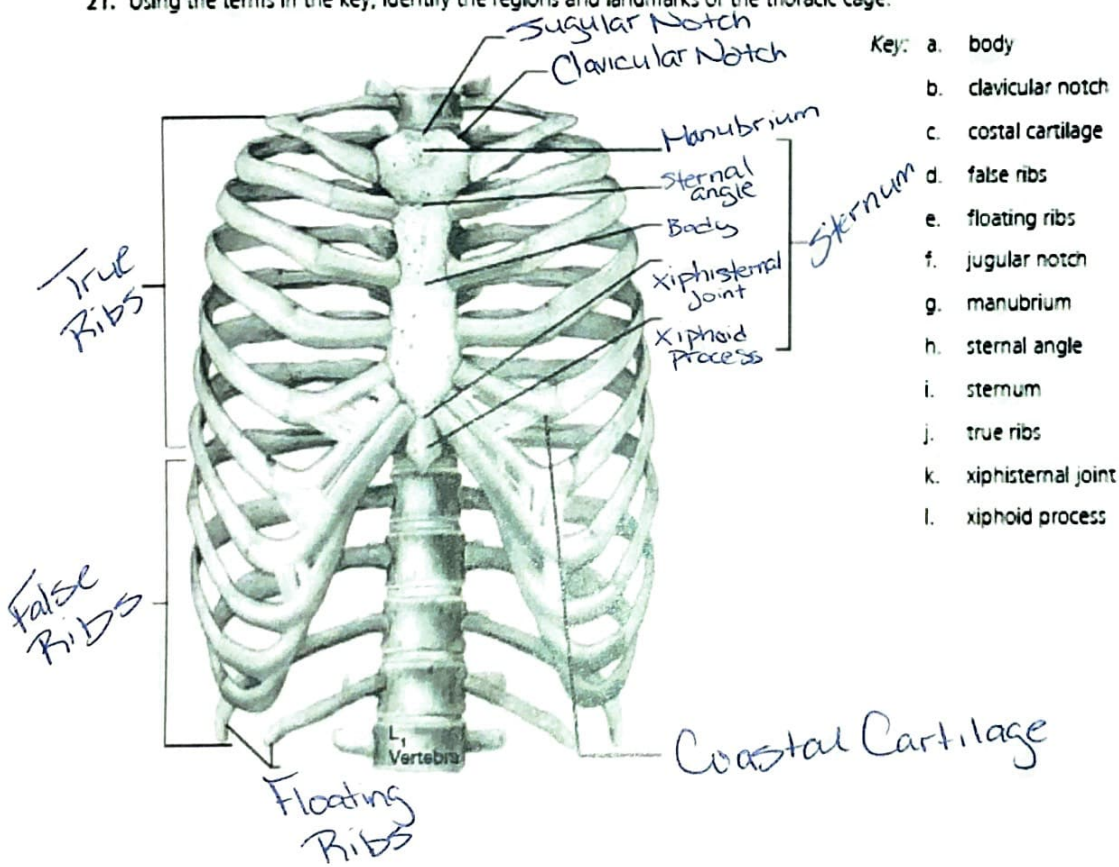 21. Using the terms in the key, identify the regions and landmarks of the thoracic cage.
Jugular Notch
Clavicular Notch
Manubrium
Sternal
angle
Body
Xiphisternal
Joint
Xiphoid
process
Sternum
True
Ribs
False
Ribs
Floating
Ribs
Coastal Cartilage
L1
Vertebra
Key: a. body
b. clavicular notch
c. costal cartilage
d. false ribs
e. floating ribs
f. jugular notch
g. manubrium
h. sternal angle
i. sternum
j. true ribs
k. xiphisternal joint
l. xiphoid process